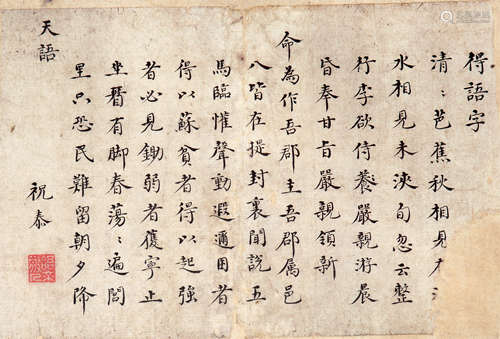 得語字
清〻芭蕉秋相見
水相見未浹旬忽云整
行李欲侍養嚴親游晨
昏奉甘旨嚴親領新
命為作吾郡主吾郡属邑
八皆在提封裏聞說五
馬臨惟聲動遐邇困者
得以蘇貧者得以起強
者必見鋤弱者獲寧止
坐看有脚春蕩〻遍閭
里只恐民難留朝夕降
天語
祝泰